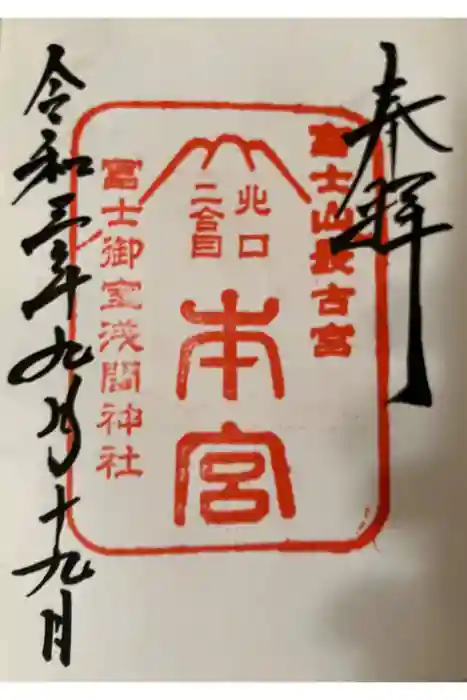 奉拝
富士山最古宮
北口
二合目
本宮
富士御室浅間神社
令和三年九月十九日